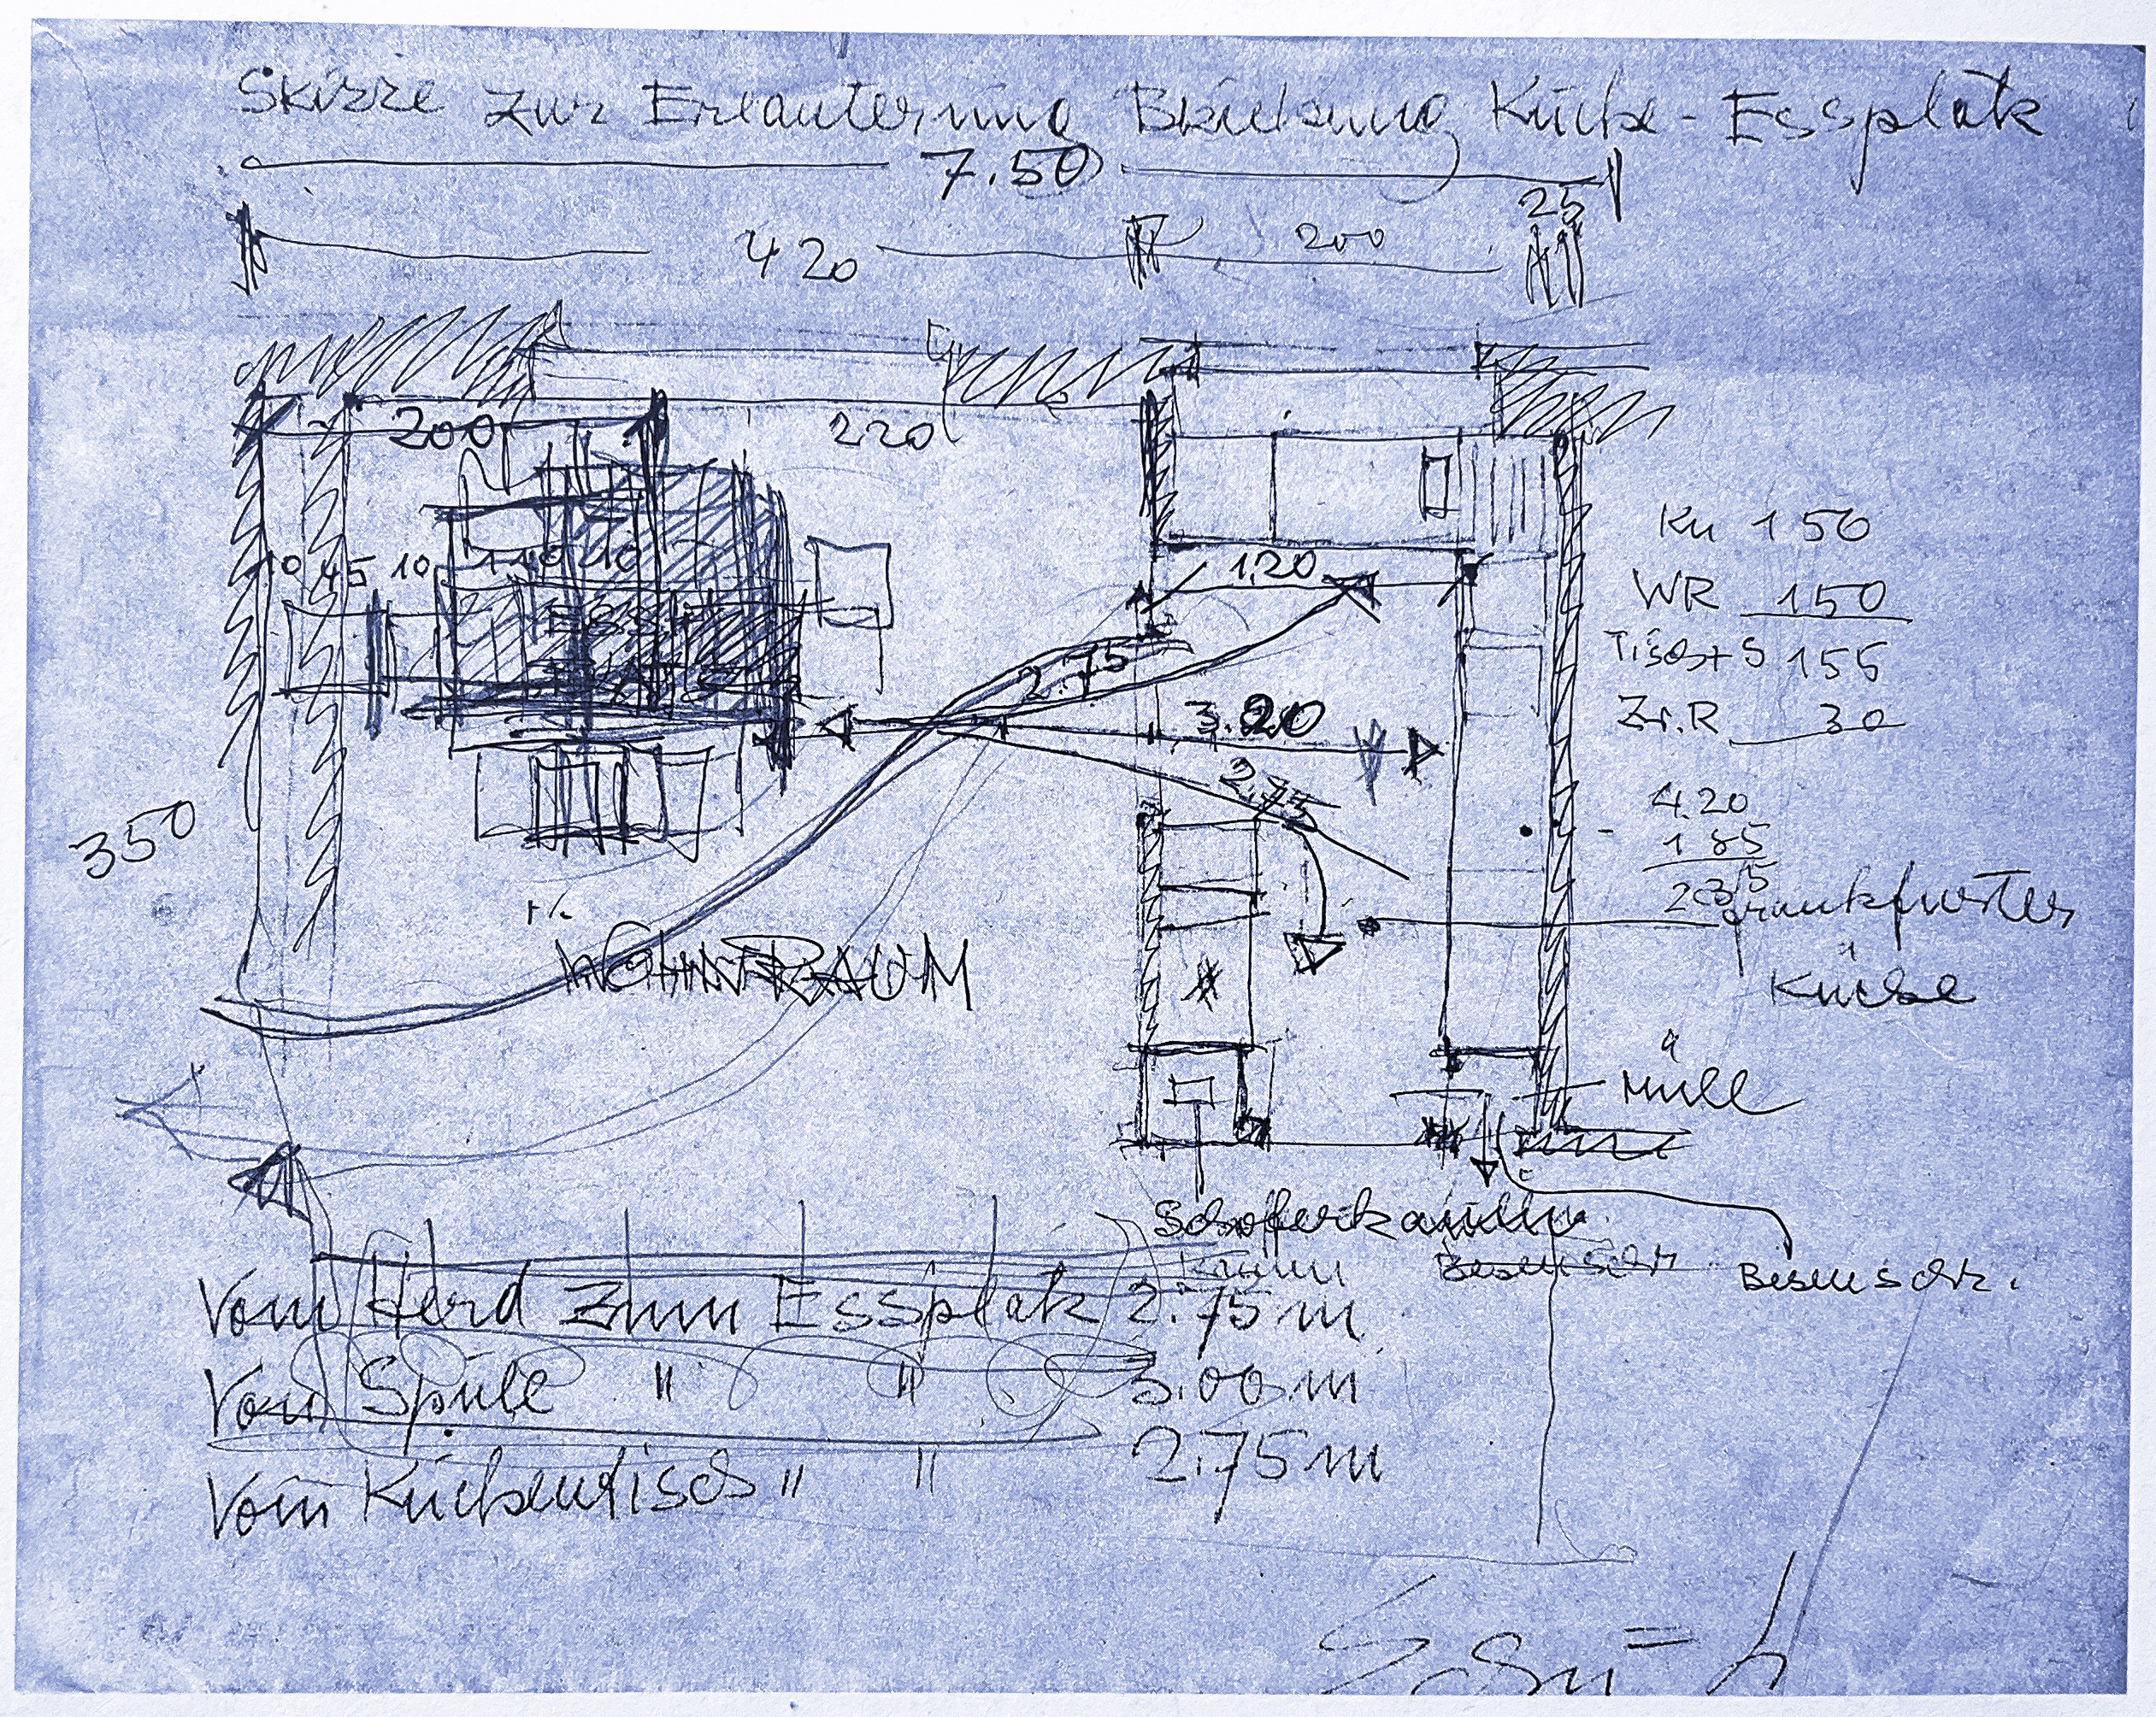 Skizze zur Erläuterung Beziehung Küche - Essplatz
7.50
25
420
200
200
220
10 45 10 110 10
1,20
Kü 150
WR 150
Tisch+S 155
Zr.R 30
ESS
PLATZ
2.75
3.20
2.75
350
4.20
1 85
235
Frankfurter
Küche
WOHNRAUM
Müll
Besensch
Besenschr.
Vom Herd zum Essplatz 2.75 m
Vom Spüle " " 3.00 m
Vom Küchentisch " " 2.75 m